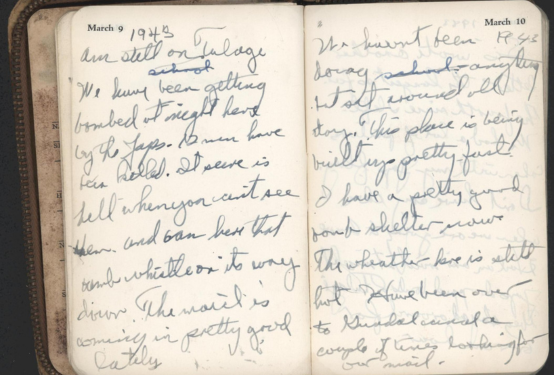 March 9 1943
am still on Tulagi
school
We have been getting
bombed at night here
by the Japs. men have
been killed. It seure is
hell when you can't see
them. and can here that
bomb whistle on its way
down. The mail is
coming in pretty good
lately
March 10
We havent been 1943
doing school anything
but sit around all
day. This place is being
built up pretty fast.
I have a pretty good
bomb shelter now
The wheather here is still
hot Have been over
to Guadalcanal a
couple of times looking for
our mail.